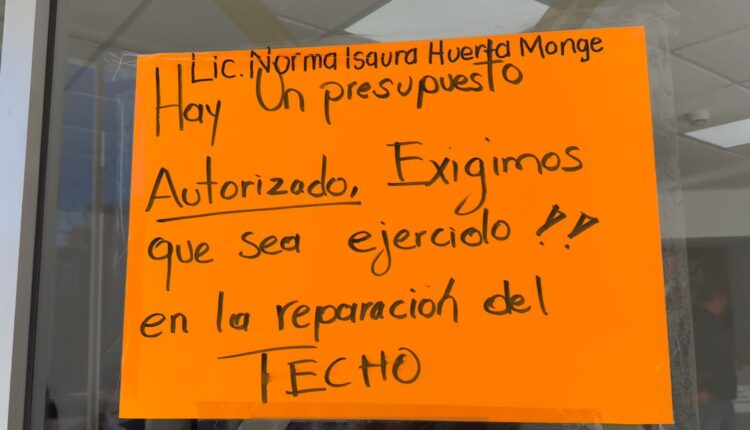 Lic. Norma Isaura Huerta Monge
Hay Un presupuesto
Autorizado. Exigimos
que sea ejercido !!
en la reparación del
TECHO